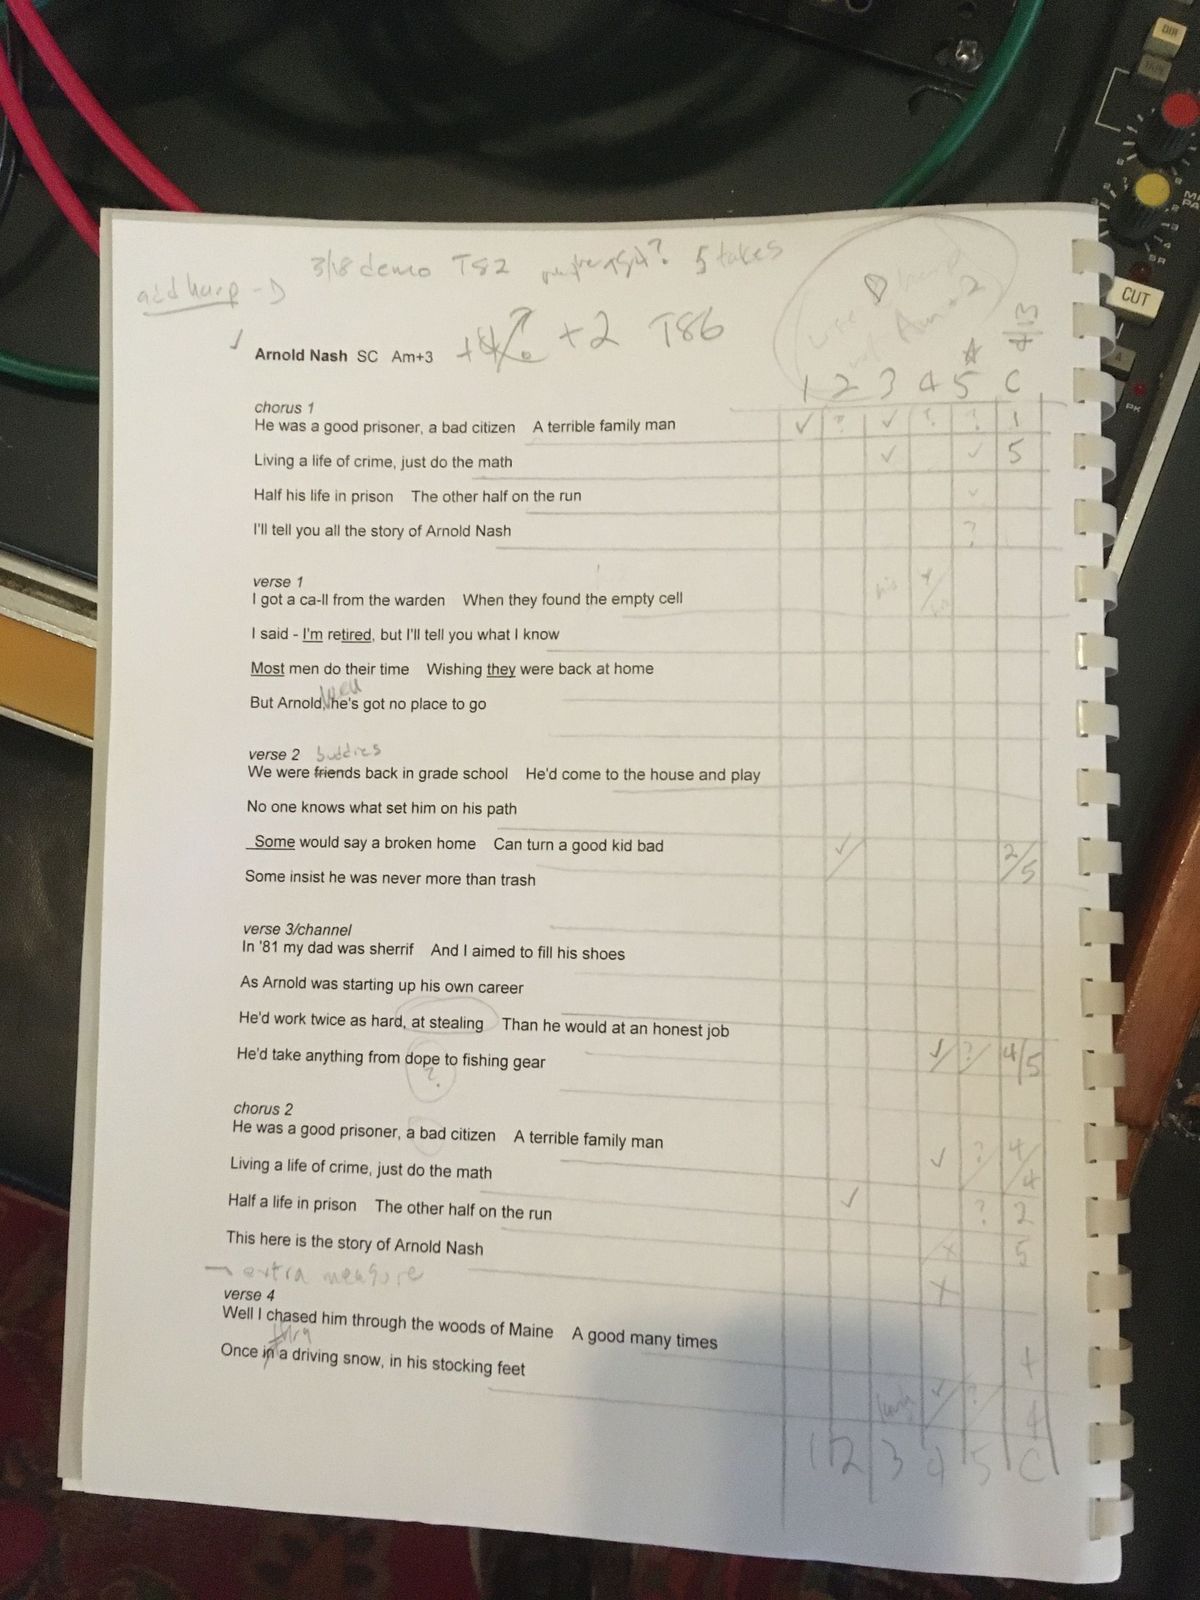 DIM
3/18 demo T82 5 takes
add harp - D
CUT
Arnold Nash SC Am+3 +2 T86
1 2 3 4 5 C
chorus 1
He was a good prisoner, a bad citizen A terrible family man ✓ ? ✓ ? ? 1
Living a life of crime, just do the math ✓ ✓ 5
PK
Half his life in prison The other half on the run ✓
I'll tell you all the story of Arnold Nash ?
verse 1
I got a ca-ll from the warden When they found the empty cell his
I said - I'm retired, but I'll tell you what I know
Most men do their time Wishing they were back at home
well
But Arnold, he's got no place to go
verse 2 buddies
We were friends back in grade school He'd come to the house and play
No one knows what set him on his path
Some would say a broken home Can turn a good kid bad ✓ 2/5
Some insist he was never more than trash
verse 3/channel
In '81 my dad was sherrif And I aimed to fill his shoes
As Arnold was starting up his own career
He'd work twice as hard, at stealing Than he would at an honest job
He'd take anything from dope to fishing gear ✓ ? 4/5
?
chorus 2
He was a good prisoner, a bad citizen A terrible family man
Living a life of crime, just do the math ✓ ? 4/4
Half a life in prison The other half on the run ✓ ? 2
This here is the story of Arnold Nash x 5
→ extra measure x
verse 4
Well I chased him through the woods of Maine A good many times
thru
Once in a driving snow, in his stocking feet
✓ ? 4
1 2 3 4 5 C